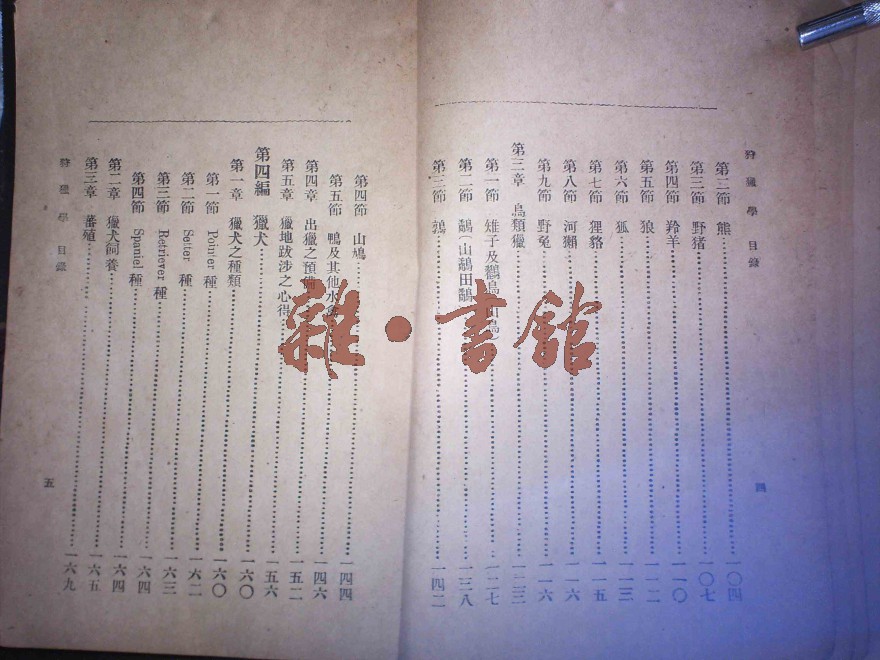 狩獵學 目錄
第二節 熊……一〇四
第三節 野猪……一〇七
第四節 羚羊……一一〇
第五節 狼……一一二
第六節 狐……一一三
第七節 狸貉……一一五
第八節 河獺……一一六
第九節 野兔……一一六
第三章 鳥類獵……一二三
第一節 雉子及鸐鳥(山鳥)……一二七
第二節 鷸(山鷸田鷸)……一三八
第三節 鶉……一四二
四
第四節 山鳩……一四四
第五節 鴨及其他水禽……一四六
第四章 出獵之預備……一五二
第五章 獵地跋涉之心得……一五六
第四編 獵犬……一六〇
第一章 獵犬之種類……一六〇
第一節 Pointer 種……一六二
第二節 Setter 種……一六三
第三節 Retriever 種……一六四
第四節 Spaniel 種……一六四
第二章 獵犬飼養……一六五
第三章 蕃殖……一六九
狩獵學 目錄
五
雜·書館